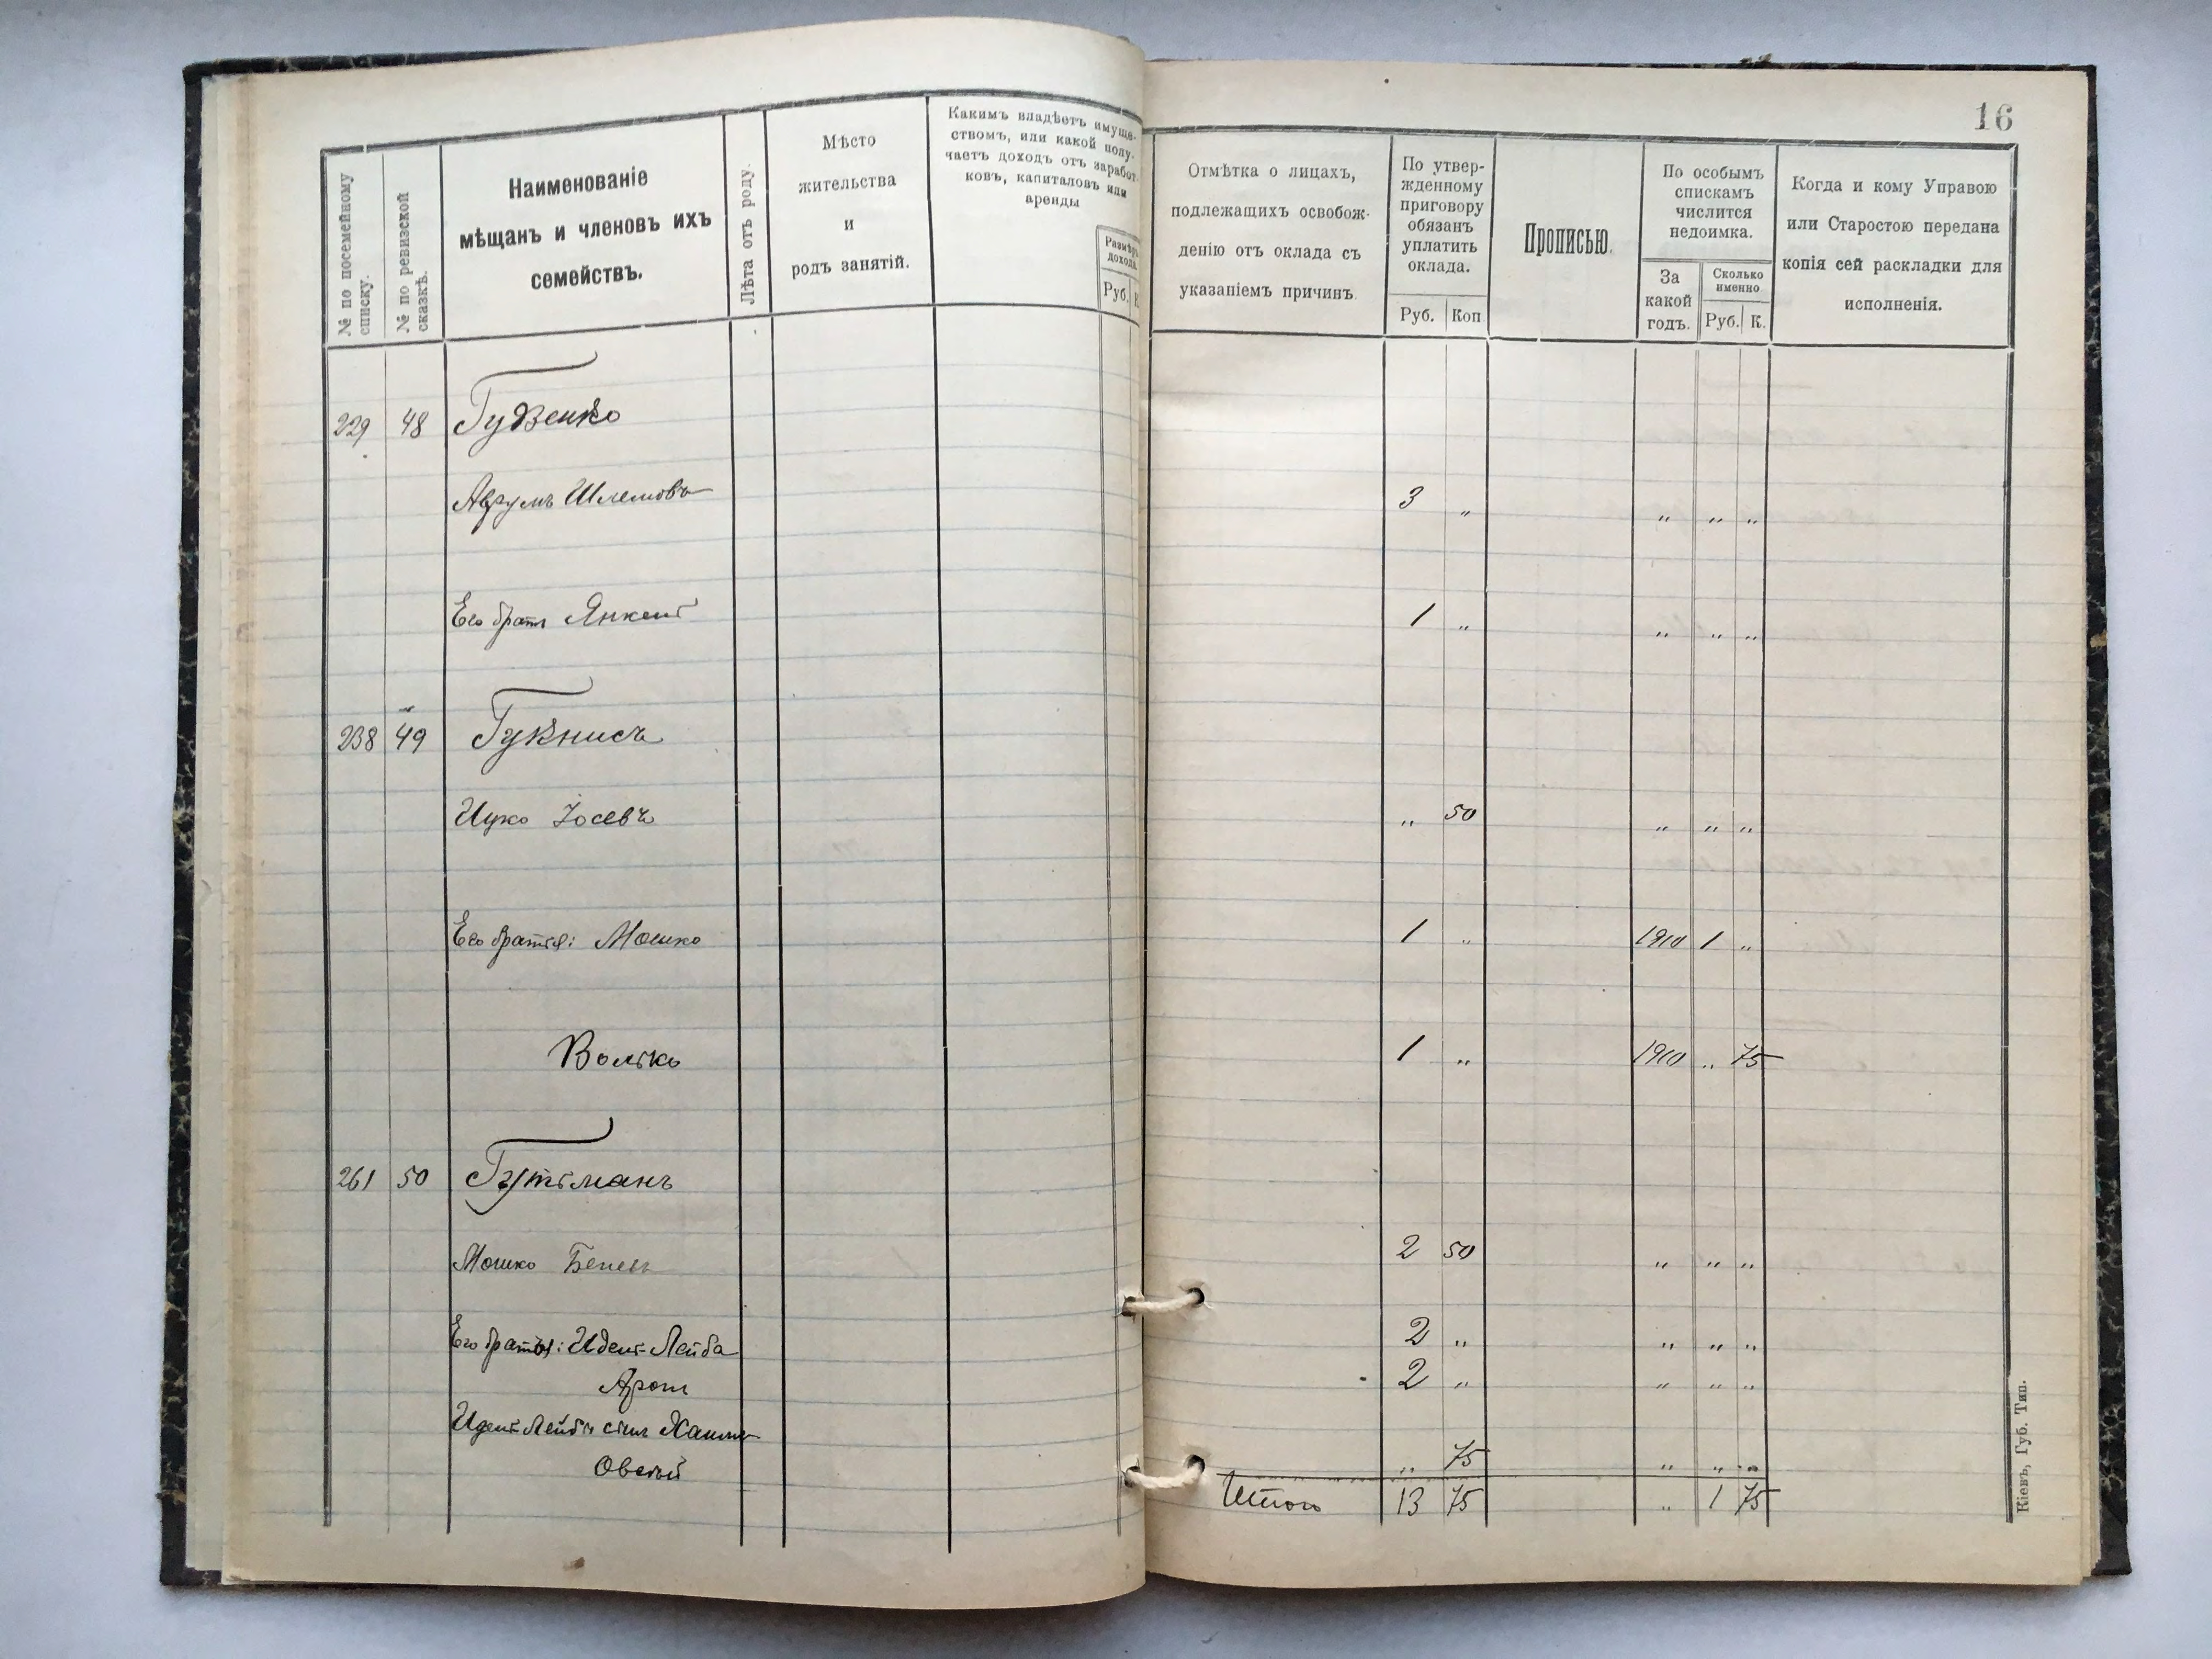 16
№ по посемейному списку.
№ по ревизской сказкѣ.
Наименованіе
мѣщанъ и членовъ ихъ
семействъ.
Лѣта отъ роду.
Мѣсто
жительства
и
родъ занятій.
Какимъ владѣетъ имуще-
ствомъ, или какой полу-
чаетъ доходъ отъ заработ-
ковъ, капиталовъ или
аренды
Размѣръ
дохода.
Руб.
Отмѣтка о лицахъ,
подлежащихъ освобож-
денію отъ оклада съ
указаніемъ причинъ.
По утвер-
жденному
приговору
обязанъ
уплатить
оклада.
Руб. Коп
Прописью.
По особымъ
спискамъ
числится
недоимка.
За
какой
годъ.
Сколько
именно
Руб. К.
Когда и кому Управою
или Старостою передана
копія сей раскладки для
исполненія.
229 48 Гудзенко
Аврумъ Шлемовъ 3 „ „ „ „
Его братъ Янкель 1 „ „ „ „
238 49 Гукнисъ
Ицко Іосевъ „ 50 „ „ „
Его братья: Мошко 1 „ 1910 1 „
Волько 1 „ 1910 „ 75
261 50 Гутьманъ
Мошко 2 50 „ „ „
Его братья: Идель Лейба 2 „ „ „ „
Аронъ 2 „ „ „ „
Идель Лейбы сынъ Хаимъ
Овсей „ 75 „ „ „
Итого 13 75 „ 1 75
Кіевъ, Губ. Тип.